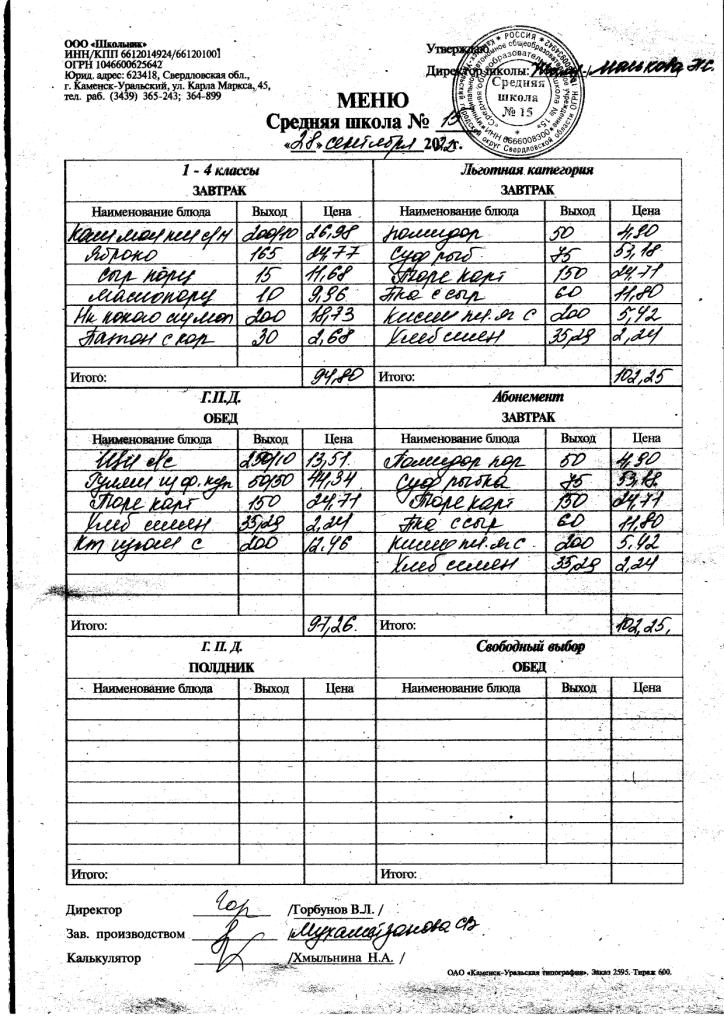 ООО «Школьник»
ИНН/КПП 6612014924/66120100
ОГРН 1046600625642
Юрид. адрес: 623418, Свердловская обл.,
г. Каменск-Уральский, ул. Карла Маркса, 45,
тел. раб. (3439) 365-243; 364-899
Утверждаю
Директор школы:
Средняя школа № 15
МЕНЮ
Средняя школа № 15
«28» сентября 2022г.
1 - 4 классы
ЗАВТРАК
Наименование блюда Выход Цена
200/10 26,98
Яблоко 165 24,77
Сыр порц 15 11,68
Масло порц 10 9,96
200 18,73
Батон с кор 30 2,68
Итого: 94,80
Льготная категория
ЗАВТРАК
Наименование блюда Выход Цена
помидор 50 4,90
Суф рыб 75 53,18
Пюре карт 150 24,71
с сыр 60 11,80
200 5,42
Хлеб 35,29 2,24
Итого: 102,25
Г.П.Д.
ОБЕД
Наименование блюда Выход Цена
Щи 250/10 13,51
50/50 44,34
Пюре карт 150 24,71
Хлеб 35,29 2,24
Кт изюм с 200 12,46
Итого: 97,26
Абонемент
ЗАВТРАК
Наименование блюда Выход Цена
Помидор пор 50 4,90
Суф рыбка 75 53,18
Пюре карт 150 24,71
с сыр 60 11,80
200 5,42
Хлеб 35,29 2,24
Итого: 102,25
Г. П. Д.
ПОЛДНИК
Наименование блюда Выход Цена
Итого:
Свободный выбор
ОБЕД
Наименование блюда Выход Цена
Итого:
Директор /Горбунов В.Л. /
Зав. производством
Калькулятор /Хмыльнина Н.А. /
ОАО «Каменск-Уральская типография». Заказ 2595. Тираж 600.